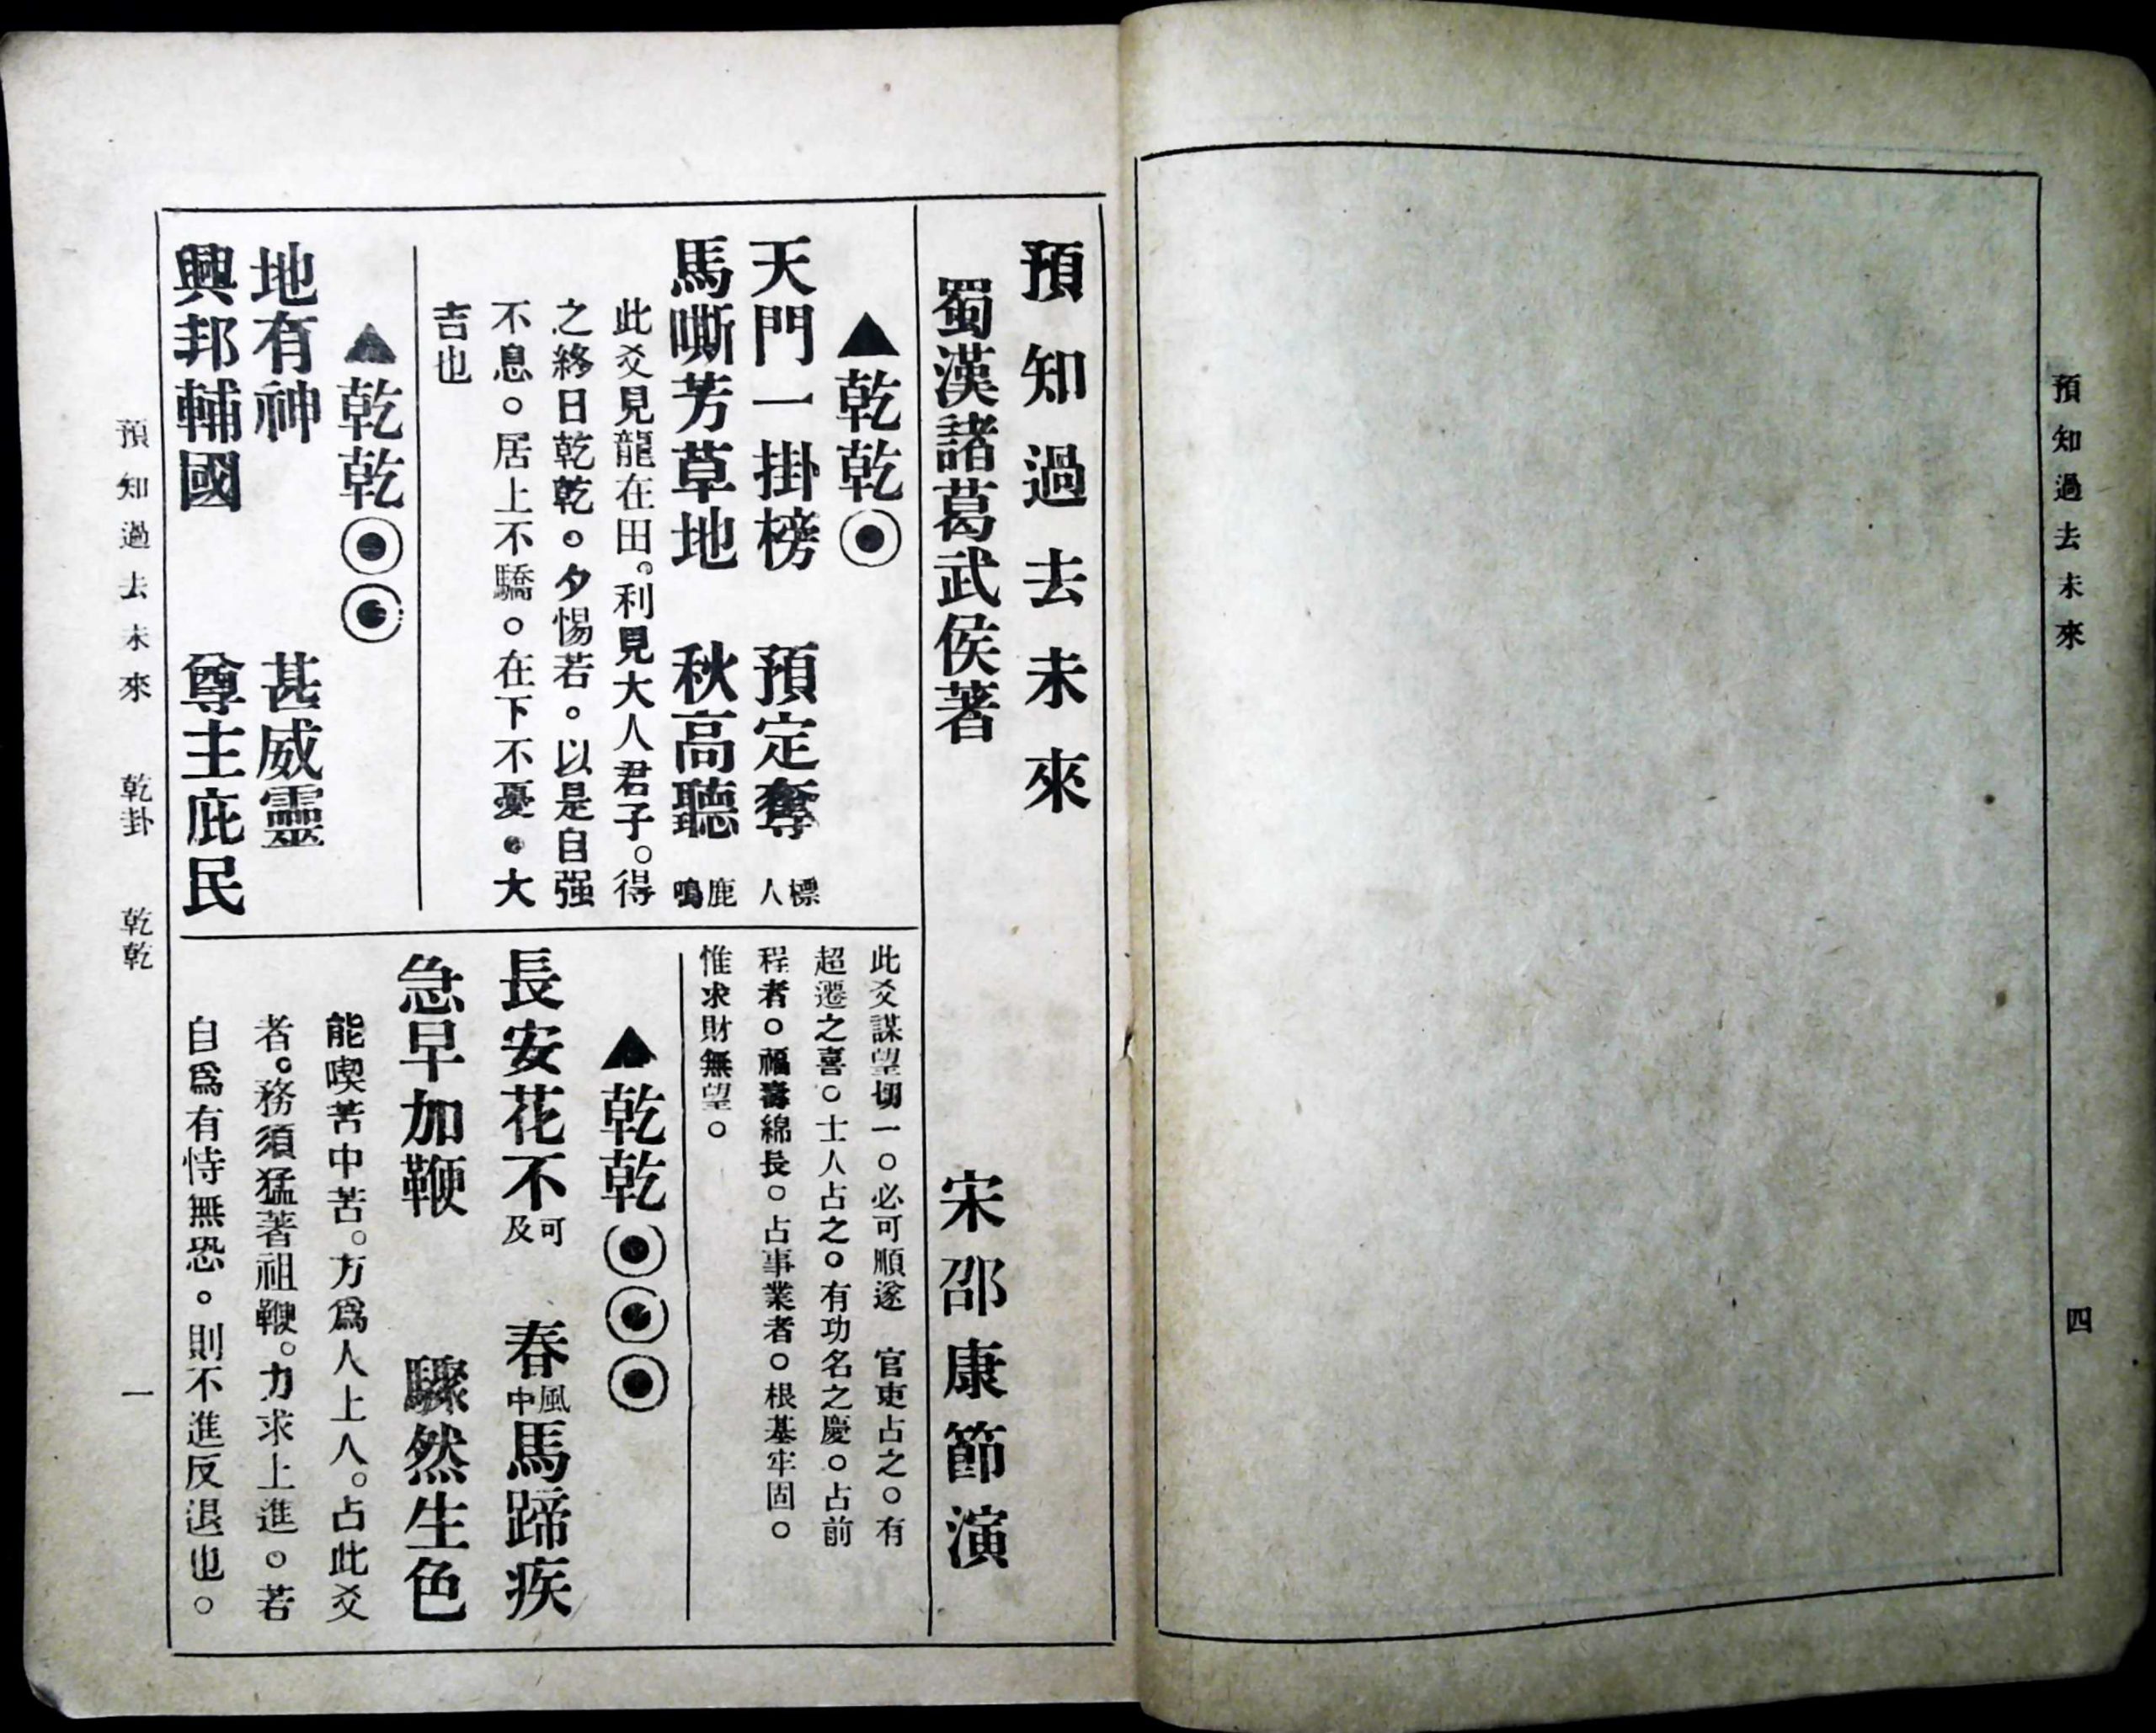 預知過去未來
四
預知過去未來
蜀漢諸葛武侯著 宋邵康節演
▲乾乾◉
天門一掛榜 預定奪標人
馬嘶芳草地 秋高聽鹿鳴
此爻見龍在田。利見大人君子。得
之終日乾乾。夕惕若。以是自强
不息。居上不驕。在下不憂。大
吉也
▲乾乾◉◉
地有神 甚威靈
興邦輔國 尊主庇民
此爻謀望切一。必可順遂 官吏占之。有
超遷之喜。士人占之。有功名之慶。占前
程者。福壽綿長。占事業者。根基牢固。
惟求財無望。
▲乾乾◉◉◉
長安花不可及 春風中馬蹄疾
急早加鞭 驟然生色
能喫苦中苦。方爲人上人。占此爻
者。務須猛著祖鞭。力求上進。若
自爲有恃無恐。則不進反退也。
預知過去未來 乾卦 乾乾 一